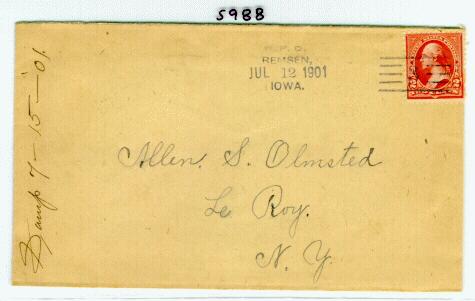 5988
R.F.D.
REMSEN,
JUL 12 1901
IOWA.
Allen. S. Olmsted
Le Roy.
N. Y.
7-15-01